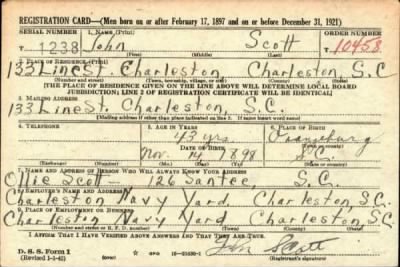 REGISTRATION CARD—(Men born on or after February 17, 1897 and on or before December 31, 1921)
SERIAL NUMBER 1. NAME (Print) ORDER NUMBER
T 1238 John Scott T 10458
(First) (Middle) (Last)
2. PLACE OF RESIDENCE (Print)
133 Line St. Charleston Charleston S.C
(Number and street) (Town, township, village, or city) (County) (State)
[THE PLACE OF RESIDENCE GIVEN ON THE LINE ABOVE WILL DETERMINE LOCAL BOARD
JURISDICTION; LINE 2 OF REGISTRATION CERTIFICATE WILL BE IDENTICAL]
3. MAILING ADDRESS
133 Line St. Charleston, S.C.
[Mailing address if other than place indicated on line 2. If same insert word same]
4. TELEPHONE 5. AGE IN YEARS 6. PLACE OF BIRTH
43 yrs. Orangeburg
DATE OF BIRTH (Town or county)
Nov. 14 1898 S.C.
(Exchange) (Number) (Mo.) (Day) (Yr.) (State or country)
7. NAME AND ADDRESS OF PERSON WHO WILL ALWAYS KNOW YOUR ADDRESS
Ollie Scott - 126 Santee S.C.
8. EMPLOYER'S NAME AND ADDRESS
Charleston Navy Yard. Charleston, S.C.
9. PLACE OF EMPLOYMENT OR BUSINESS
Charleston Navy Yard Charleston, S.C
(Number and street or R. F. D. number) (Town) (County) (State)
I AFFIRM THAT I HAVE VERIFIED ABOVE ANSWERS AND THAT THEY ARE TRUE.
John Scott
D. S. S. Form 1
(Revised 1-1-42) (over) GPO (Registrant's signature)